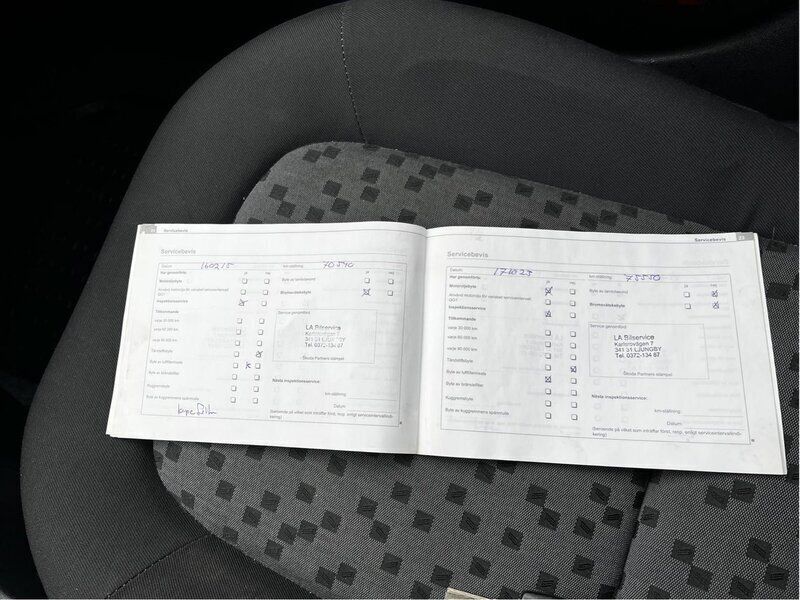 Servicebevis
Servicebevis
Datum: 160215 km-ställning: 70540
Har genomförts: ja nej ja nej
Motoroljebyte Byte av tändremsrem
Använd motorolja för variabel serviceintervall
QG1 Bromsvätskebyte
Inspektionsservice
Tillkommande
varje 30 000 km
varje 60 000 km
varje 90 000 km
Tändstiftsbyte
Byte av luftfilterinsats
Byte av bränslefilter
Kuggremsbyte
Byte av kuggremmens spännrulle
Service genomförd
LA Bilservice
Karlsrovägen 7
341 31 LJUNGBY
Tel. 0372-134 67
Skoda Partners stämpel
Nästa inspektionsservice:
Datum
(beroende på vilket som inträffar först, resp. enligt serviceintervallindi-
kering)
Servicebevis
Servicebevis
Datum: 171025 km-ställning: 75550
Har genomförts: ja nej ja nej
Motoroljebyte
Använd motorolja för variabel serviceintervall
QG1 Bromsvätskebyte
Inspektionsservice
Tillkommande
varje 30 000 km
varje 60 000 km
varje 90 000 km
Tändstiftsbyte
Byte av luftfilterinsats
Byte av bränslefilter
Kuggremsbyte
Byte av kuggremmens spännrulle
Service genomförd
LA Bilservice
Karlsrovägen 7
341 31 LJUNGBY
Tel. 0372-134 67
Skoda Partners stämpel
Nästa inspektionsservice:
km-ställning:
Datum
(beroende på vilket som inträffar först, resp. enligt serviceintervallindi-
kering)